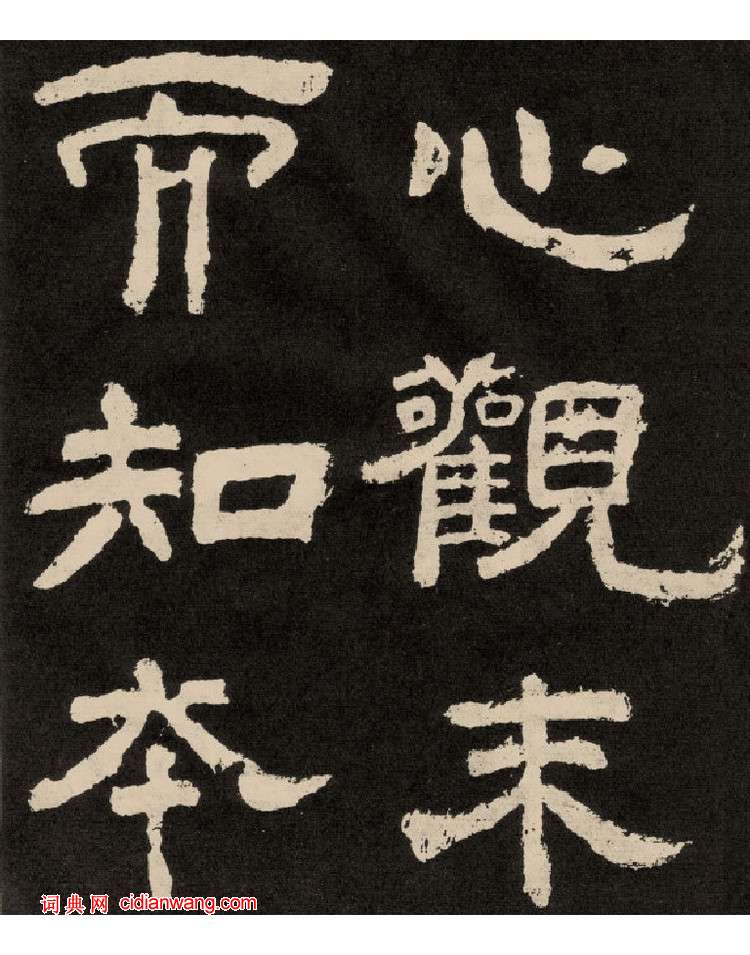 心觀末
而知本
词典网 cidianwang.com